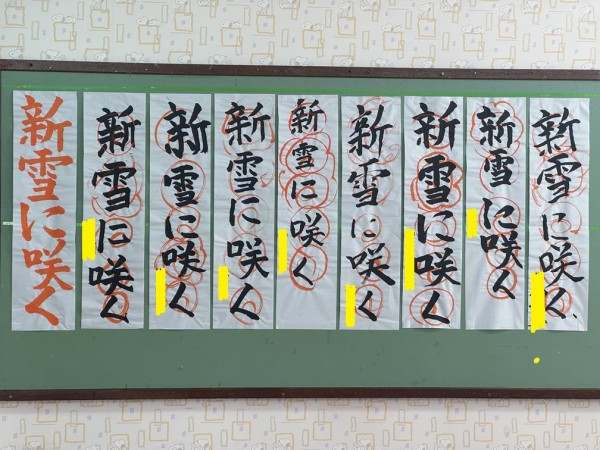 新雪に咲く
新雪に咲く
新雪に咲く
新雪に咲く
新雪に咲く
新雪に咲く
新雪に咲く
新雪に咲く
新雪に咲く